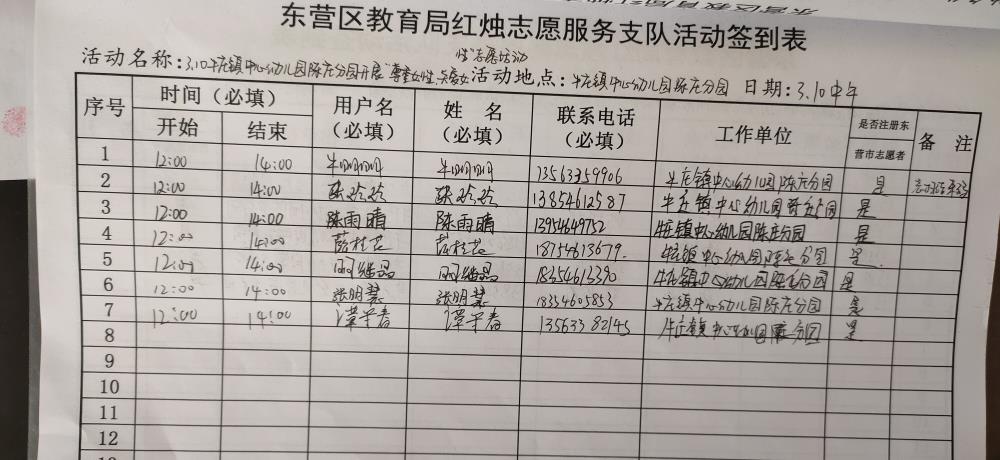 东营区教育局红烛志愿服务支队活动签到表
性"志愿活动
活动名称:3.10牛庄镇中心幼儿园陈庄分园开展"尊重女性、关爱女 活动地点:牛庄镇中心幼儿园陈庄分园 日期:3.10中午
序号 时间(必填) 用户名(必填) 姓 名(必填) 联系电话(必填) 工作单位 是否注册东营市志愿者 备 注
开始 结束
1 12:00 14:00 牛明明 牛明明 13563359906 牛庄镇中心幼儿园陈庄分园 是
2 12:00 14:00 13854612587 牛庄镇中心幼儿园陈庄分园 是
3 12:00 14:00 陈雨晴 陈雨晴 13954649752 牛庄镇中心幼儿园陈庄分园 是
4 12:00 14:00 18754613679 牛庄镇中心幼儿园陈庄分园 是
5 12:00 14:00 18354612390 牛庄镇中心幼儿园陈庄分园 是
6 12:00 14:00 张明慧 张明慧 18354605853 牛庄镇中心幼儿园陈庄分园 是
7 12:00 14:00 谭平春 谭平春 13563382145 牛庄镇中心幼儿园陈分园 是
8
9
10
11
12